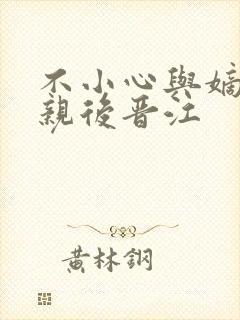 不小心與嫡
親後晋江
黃林鋼